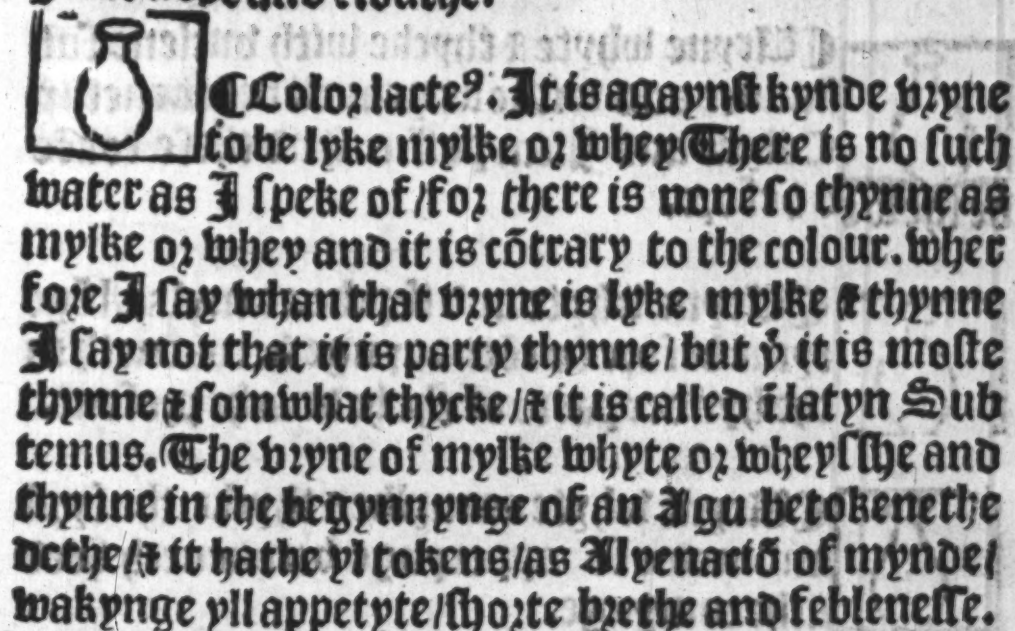 ¶Color lacteꝰ. It is agaynſt kynde vryne
to be lyke mylke or whey There is no ſuch
water as I ſpeke of/for there is none ſo thynne as
mylke or whey and it is cõtrary to the colour. wher
fore I ſay whan that vryne is lyke mylke ⁊ thynne
I ſay not that it is party thynne/but yͭ it is moſte
thynne ⁊ ſomwhat thycke/⁊ it is called ĩ latyn Sub
temus. The vryne of mylke whyte or wheyſſhe and
thynne in the begynnynge of an Agu betokenethe
dethe/⁊ it hathe yl tokens/as Alyenaciõ of mynde/
wakynge yll appetyte/ſhorte brethe and febleneſſe.